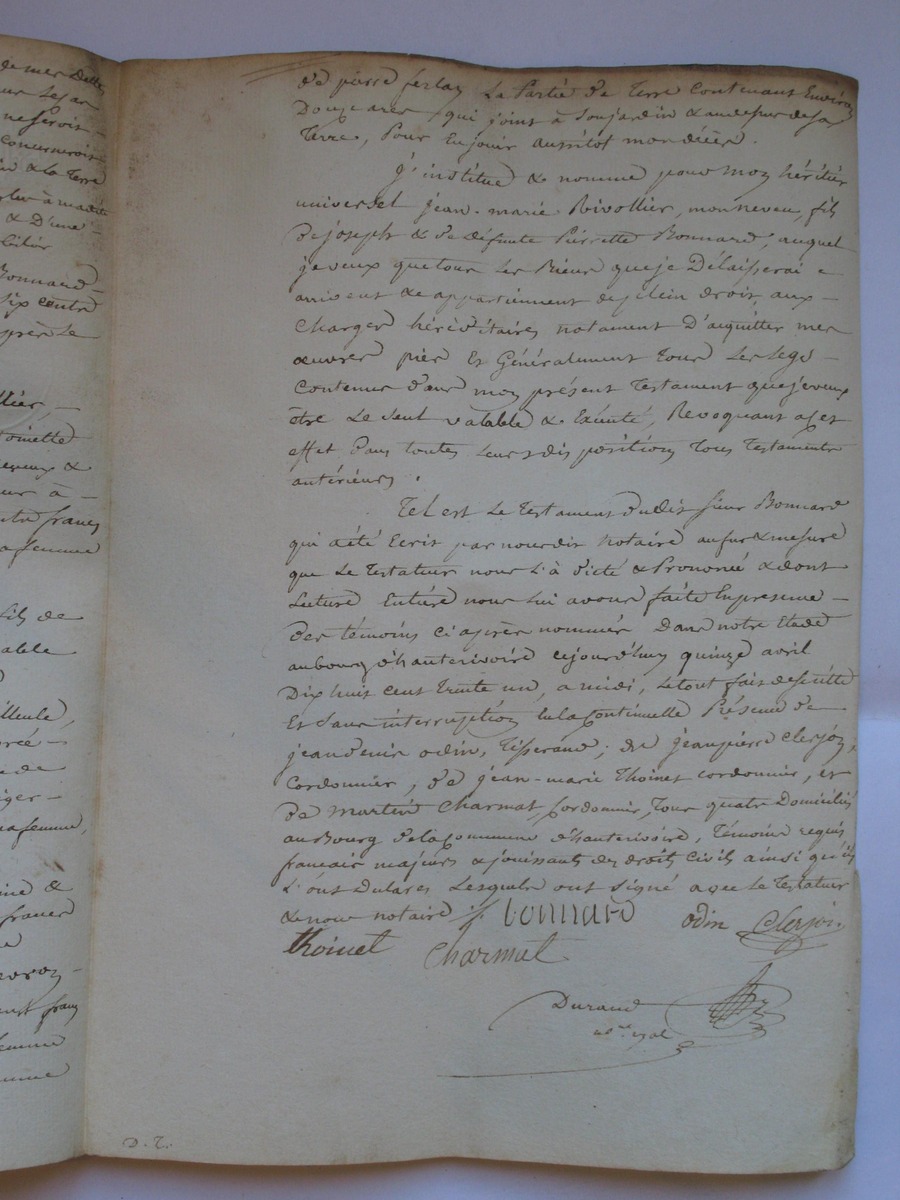 de mes dettes
ne seroit
concerneroit
& la Terre
& D'une
Bonnard
six cents
après le
llier,
toinette
neveux &
à
francs
sa femme
fils de
lable
illeule,
de
sa femme,
&
francs
francs
femme
de pierre ferlay La Partie de Terre Contenant Environ
Douze ares qui joint à Son jardin & au dessus de sa
Terre, Pour En jouir aussitôt mon décès.
J'institue & nomme pour Mon héritier
universel jean-marie Rivollier, mon neveu, fils
de joseph & de défunte Pierrette Bonnard, auquel
je veux que tous les Biens que je Délaisserai
arrivent & appartiennent de plein droit, aux
Charges héréditaires notament D'aquitter mes
œuvres pies Et Généralement Tous Les Legs
Contenus dans mon présent Testament que je veux
être Le seul valable & Exécuté, Revoquant a cet
effet Dans toutes leurs dispositions Tous Testaments
antérieurs.
Tel est Le Testament dudit sieur Bonnard
qui a été Ecrit par nous dit Notaire au fur & mesure
que Le Testateur nous l'à dicté & Prononcé & dont
Lecture Entière nous Lui avons faite En présence
Des témoins ci après nommés Dans notre Etude
au bourg d'hauterivoire cejourd'huy quinze avril
Dix huit cent trente un, a midi, Le tout fait de suitte
Et Sans interruption En la Continuelle Présence de
jean denis odin, Tisserand; de jean pierre Clerjon,
Cordonnier, de jean-marie Thoinet cordonnier, et
de martin Charmat, Cordonnier, Tous quatre Domiciliés
au Bourg de la Commune d'hauterivoire, Témoins requis
francais majeurs & jouissants des droits Civils ainsi qu'ils
L'ont Déclarés Lesquels ont signé avec Le Testateur
& nous notaire. j. bonnard odin Clerjon
thoinet Charmat
Durand
D. T.